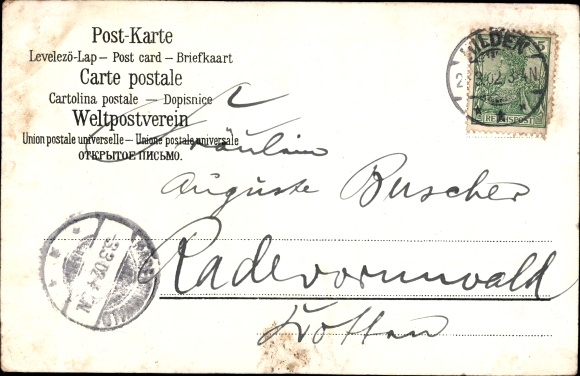 Post-Karte
Levelezö-Lap — Post card — Briefkaart
Carte postale
Cartolina postale — Dopisnice
Weltpostverein
Union postale universelle — Unione postale universale
ОТКРЫТОЕ ПИСЬМО.
HILDEN
3-4N
5
REICHSPOST
Fräulein
Auguste Buscher
3.3.02
Radevormwald